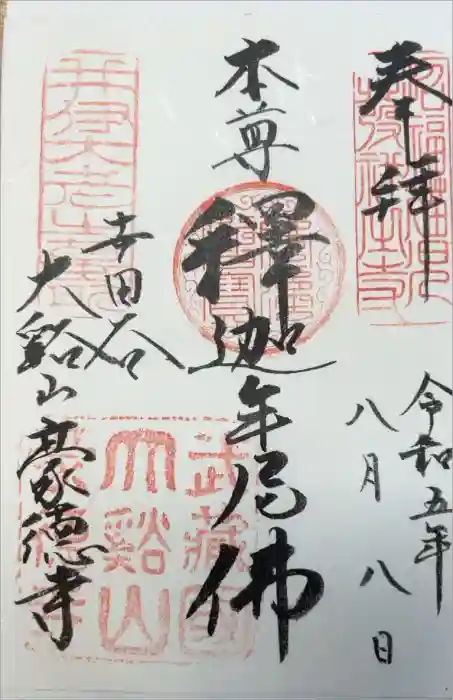 奉拝
令和五年
八月八日
本尊
釋迦牟尼佛
世田谷
大谿山豪徳寺
武蔵國
大谿山
豪徳寺